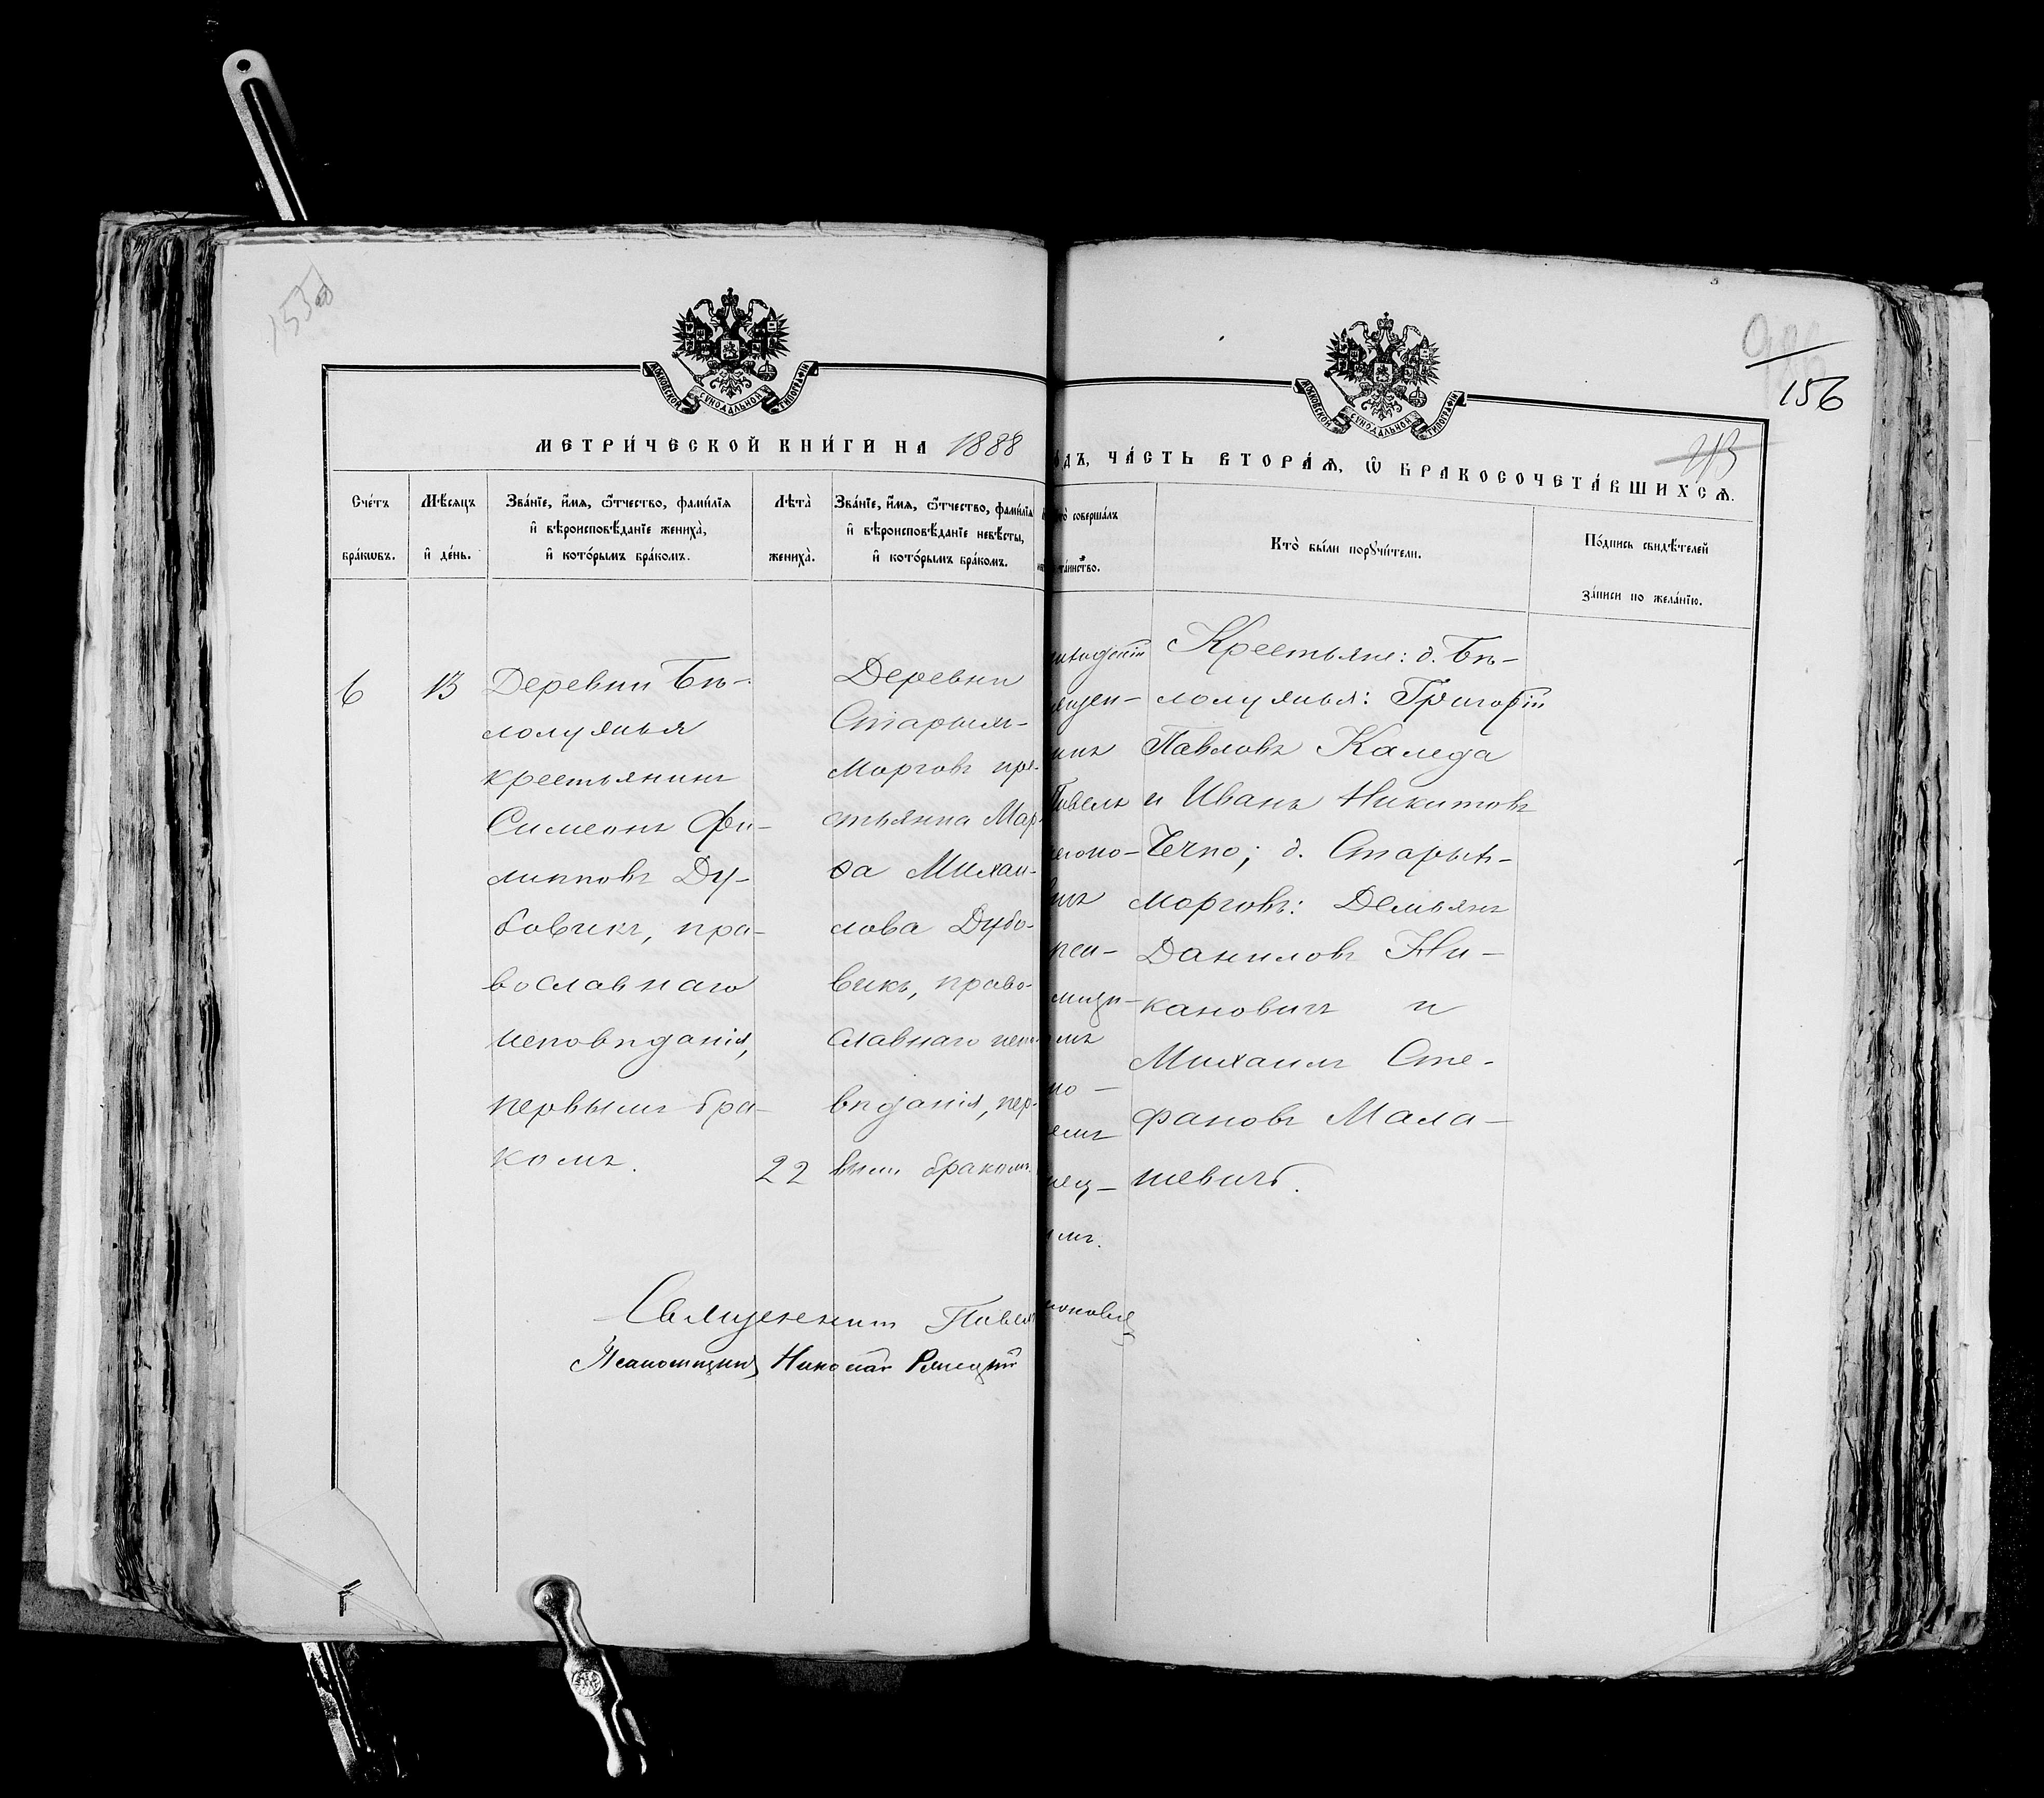 155об
986
156
МОСКОВСКОЙ СѴНОДАЛЬНОЙ ТИПОГРАФІИ
МОСКОВСКОЙ СѴНОДАЛЬНОЙ ТИПОГРАФІИ
МЕТРИ́ЧЕСКОЙ КНИ́ГИ НА 1888
ДЪ, ЧА́СТЬ ВТОРА́Ѧ, Ѽ БРАКОСОЧЕТА́ВШИХСѦ.
Сче́тъ
бра́кѡвъ.
Мѣ́сяцъ
и҆ де́нь.
Зва́нїе, и҆́мѧ, ѻ҆́тчество, фами́лїѧ
и҆ вѣроисповѣ́данїе жениха̀,
и҆ кото́рымъ бра́комъ.
Лѣта̀
жениха̀.
Зва́нїе, и҆́мѧ, ѻ҆́тчество, фами́лїѧ
и҆ вѣроисповѣ́данїе невѣ́сты,
и҆ кото́рымъ бра́комъ.
соверша́лъ
та́инство.
Кто̀ бы́ли порꙋчи́тели.
По́дпись свидѣ́телей
за́писи по жела́нїю.
6
13
Деревни Бѣ-
лолужья
крестьянинъ
Симеонъ Фи-
липповъ Ду-
бовикъ, пра-
вославнаго
исповѣданія,
первымъ бра-
комъ.
22
Деревни
Старыхъ-
Морговъ кре-
стьянка Мар-
ѳа Михаи-
лова Дубо-
викъ, право-
славнаго испо
вѣданія, пер-
вымъ бракомъ.
Крестьяне: д. Бѣ-
лолужья: Григорій
Павловъ Каледа
и Иванъ Никитовъ
Печко; д. Старыхъ-
морговъ: Демьянъ
Даниловъ Ни-
кановичъ и
Михаилъ Сте-
фановъ Мала-
шевичъ.
Священникъ Павелъ
Псаломщикъ Николай